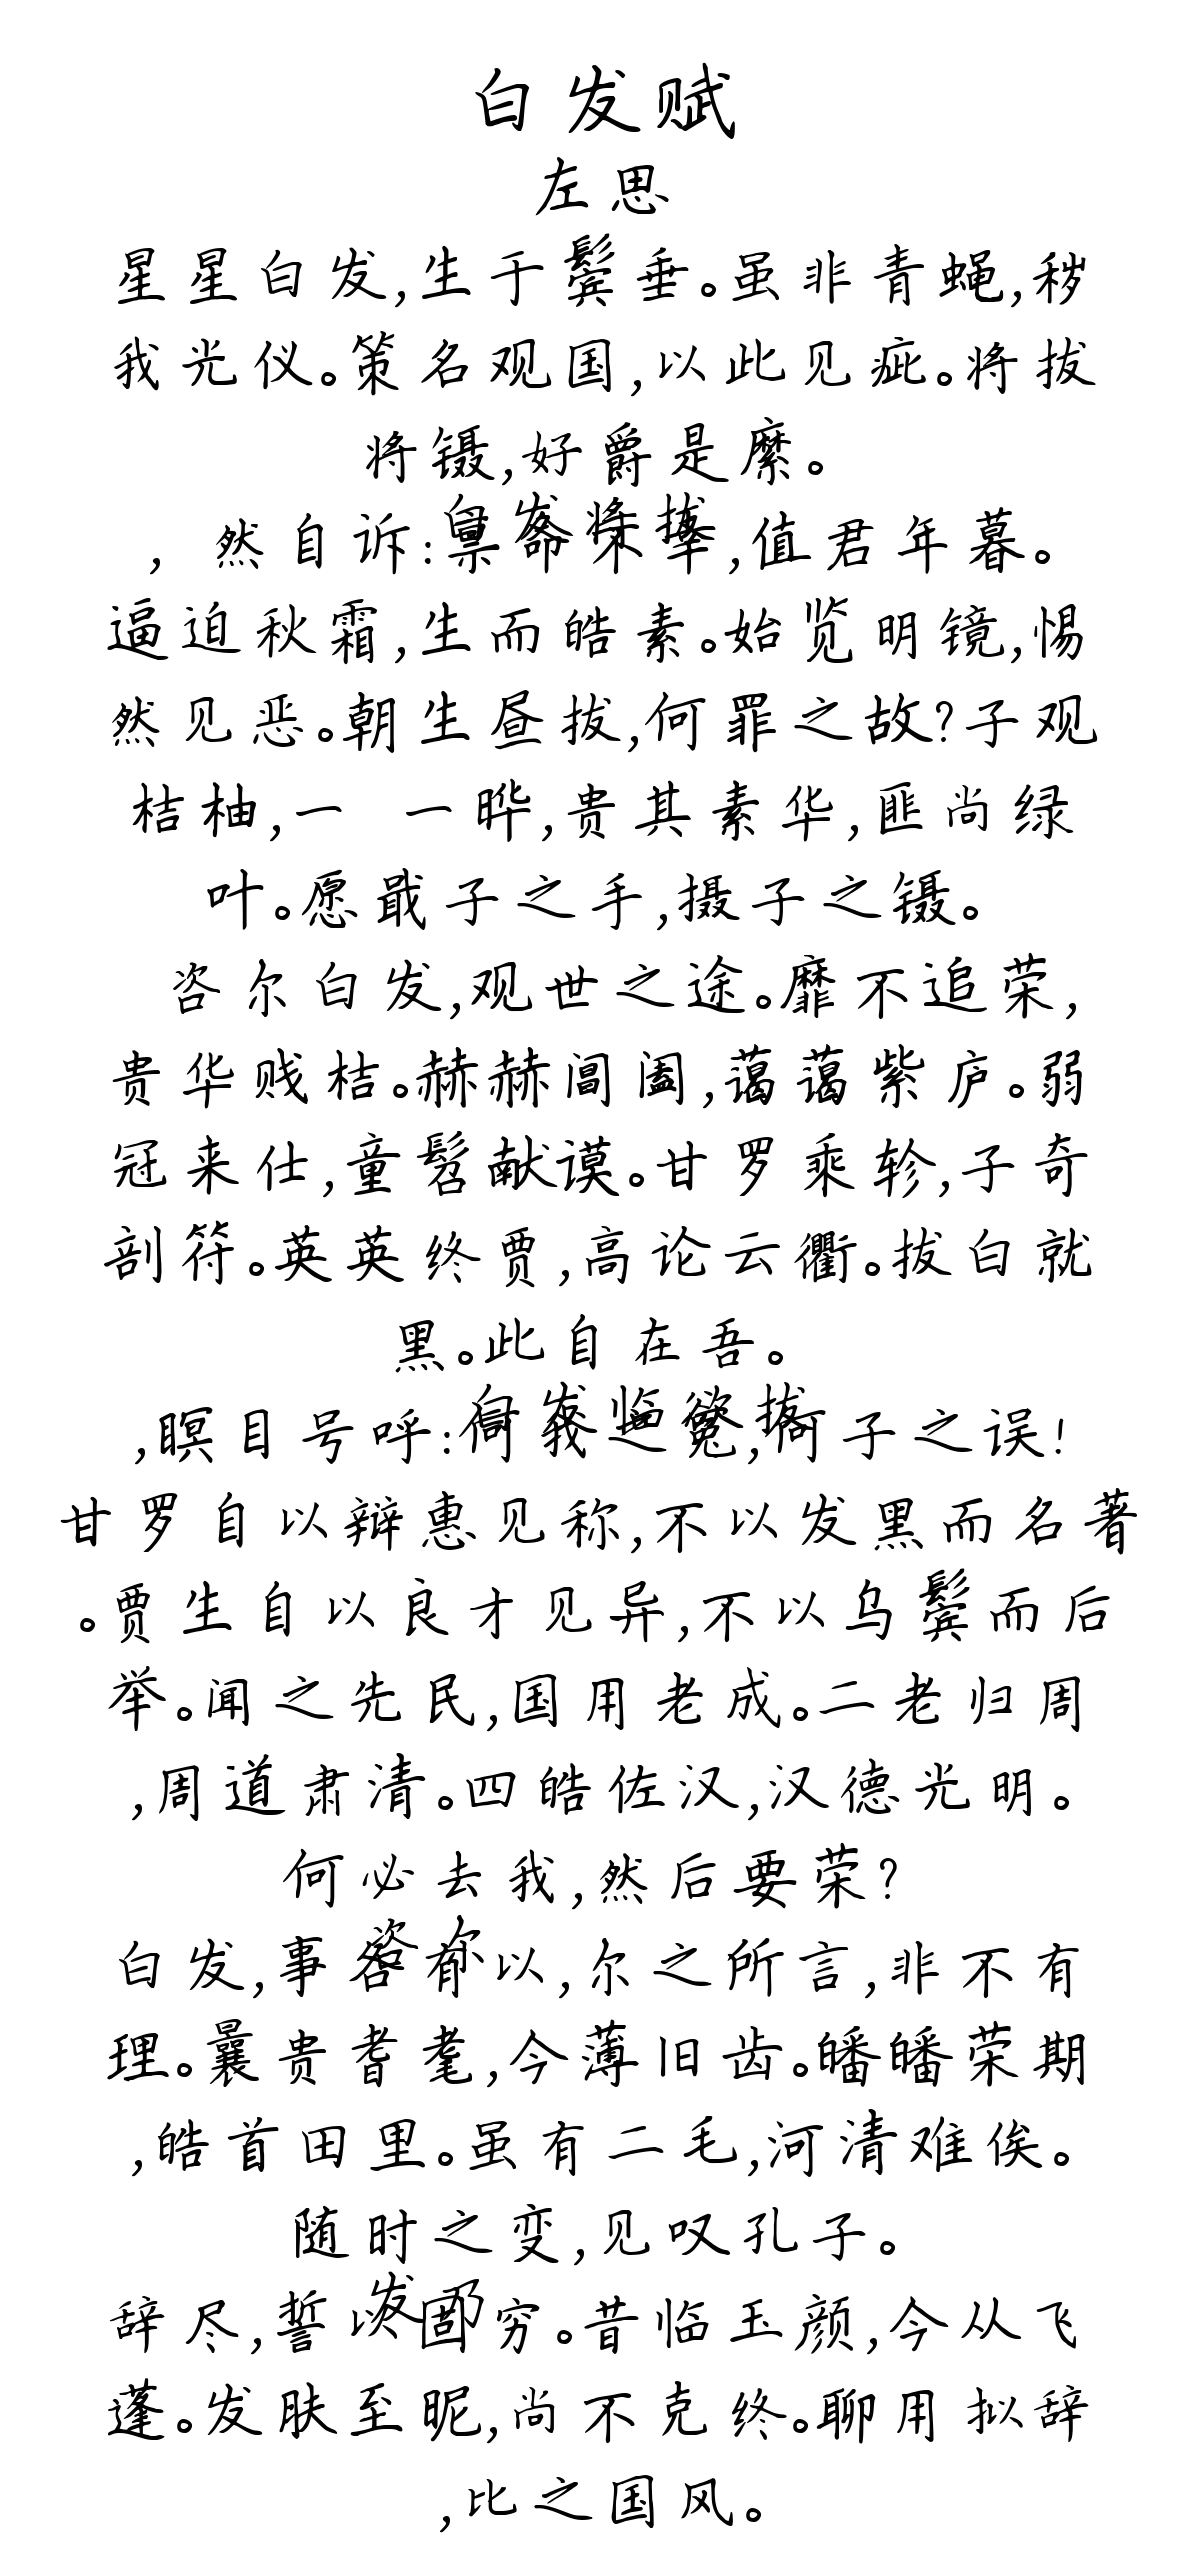 白发赋
左思
星星白发,生于鬓垂。虽非青蝇,秽
我光仪。策名观国,以此见疵。将拔
将镊,好爵是縻。
白发将拔
, 然自诉:禀命不幸,值君年暮。
逼迫秋霜,生而皓素。始览明镜,惕
然见恶。朝生昼拔,何罪之故?子观
桔柚,一 一晔,贵其素华,匪尚绿
叶。愿戢子之手,摄子之镊。
咨尔白发,观世之途。靡不追荣,
贵华贱桔。赫赫阊阖,蔼蔼紫庐。弱
冠来仕,童髫献谟。甘罗乘轸,子奇
剖符。英英终贾,高论云衢。拔白就
黑。此自在吾。
白发临欲拔
,瞑目号呼:何我之冤,何子之误!
甘罗自以辩惠见称,不以发黑而名著
。贾生自以良才见异,不以乌鬓而后
举。闻之先民,国用老成。二老归周
,周道肃清。四皓佐汉,汉德光明。
何必去我,然后要荣?
咨尔
白发,事各有以,尔之所言,非不有
理。曩贵耆耄,今薄旧齿。皤皤荣期
,皓首田里。虽有二毛,河清难俟。
随时之变,见叹孔子。
发乃
辞尽,誓以固穷。昔临玉颜,今从飞
蓬。发肤至昵,尚不克终。聊用拟辞
,比之国风。